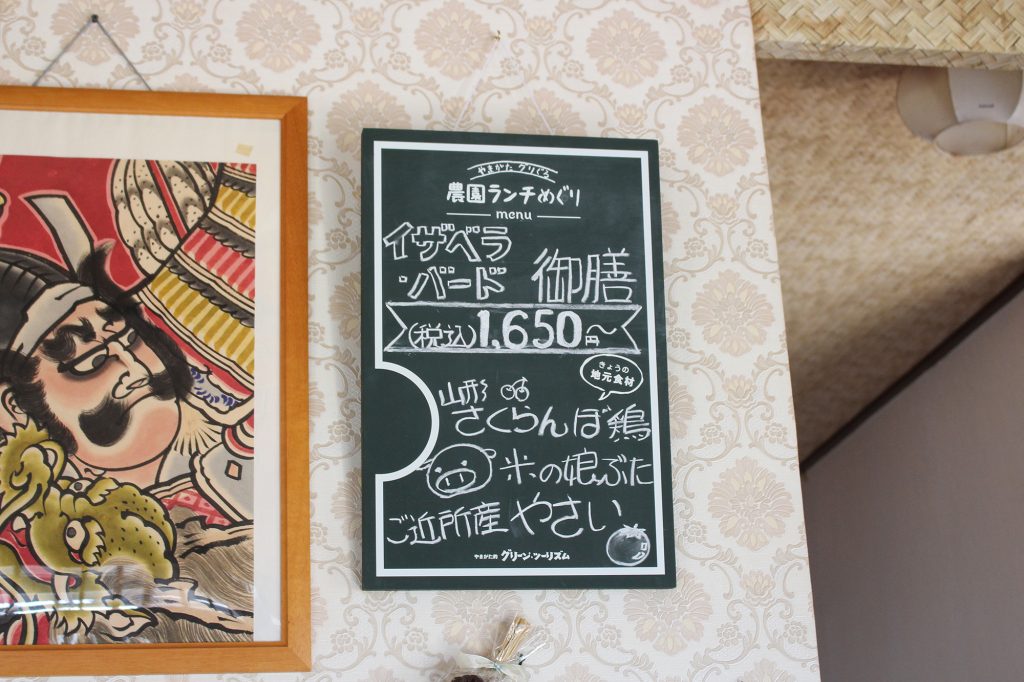 やまがた グリぐる
農園ランチめぐり
menu
イザベラ
・バード 御膳
(税込)1,650円~
きょうの
地元食材
山形
さくらんぼ鶏
米の娘ぶた
ご近所産やさい
やまがた的 グリーン・ツーリズム